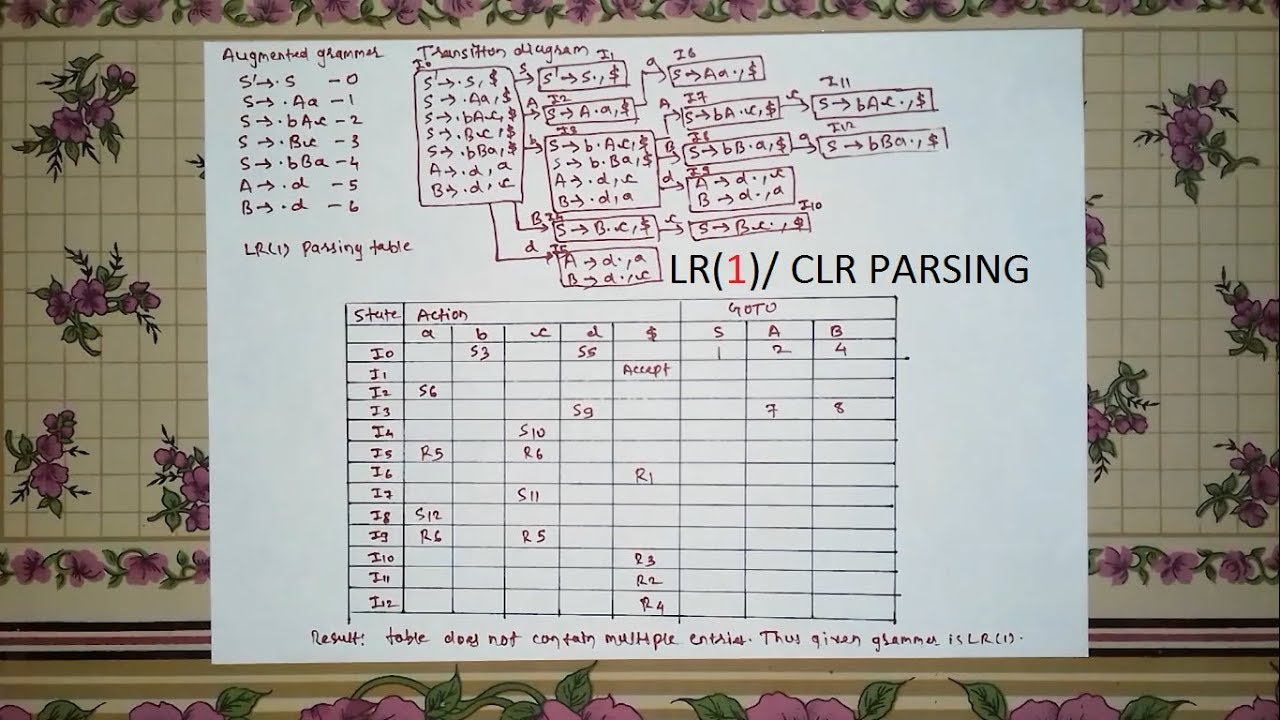 Augmented grammer
S'→.S -0
S→.Aa -1
S→.bAc -2
S→.Bc -3
S→.bBa -4
A→.d -5
B→.d -6
LR(1) Parsing table
Transition diagram
I0
S'→.S,$
S→.Aa,$
S→.bAc,$
S→.Bc,$
S→.bBa,$
A→.d,a
B→.d,c
S
I1
S'→S.,$
A
I2
S→A.a,$
a
I6
S→Aa.,$
b
I3
S→b.Ac,$
S→b.Ba,$
A→.d,c
B→.d,a
A
I7
S→bA.c,$
c
I11
S→bAc.,$
B
I8
S→bB.a,$
a
I12
S→bBa.,$
d
I9
A→d.,c
B→d.,a
B
I4
S→B.c,$
c
I10
S→Bc.,$
d
I5
A→d.,a
B→d.,c
LR(1)/ CLR PARSING
State Action GOTO
a b c d $ S A B
I0 S3 S5 1 2 4
I1 Accept
I2 S6
I3 S9 7 8
I4 S10
I5 R5 R6
I6 R1
I7 S11
I8 S12
I9 R6 R5
I10 R3
I11 R2
I12 R4
Result: table does not contain multiple entries. Thus given grammer is LR(1).